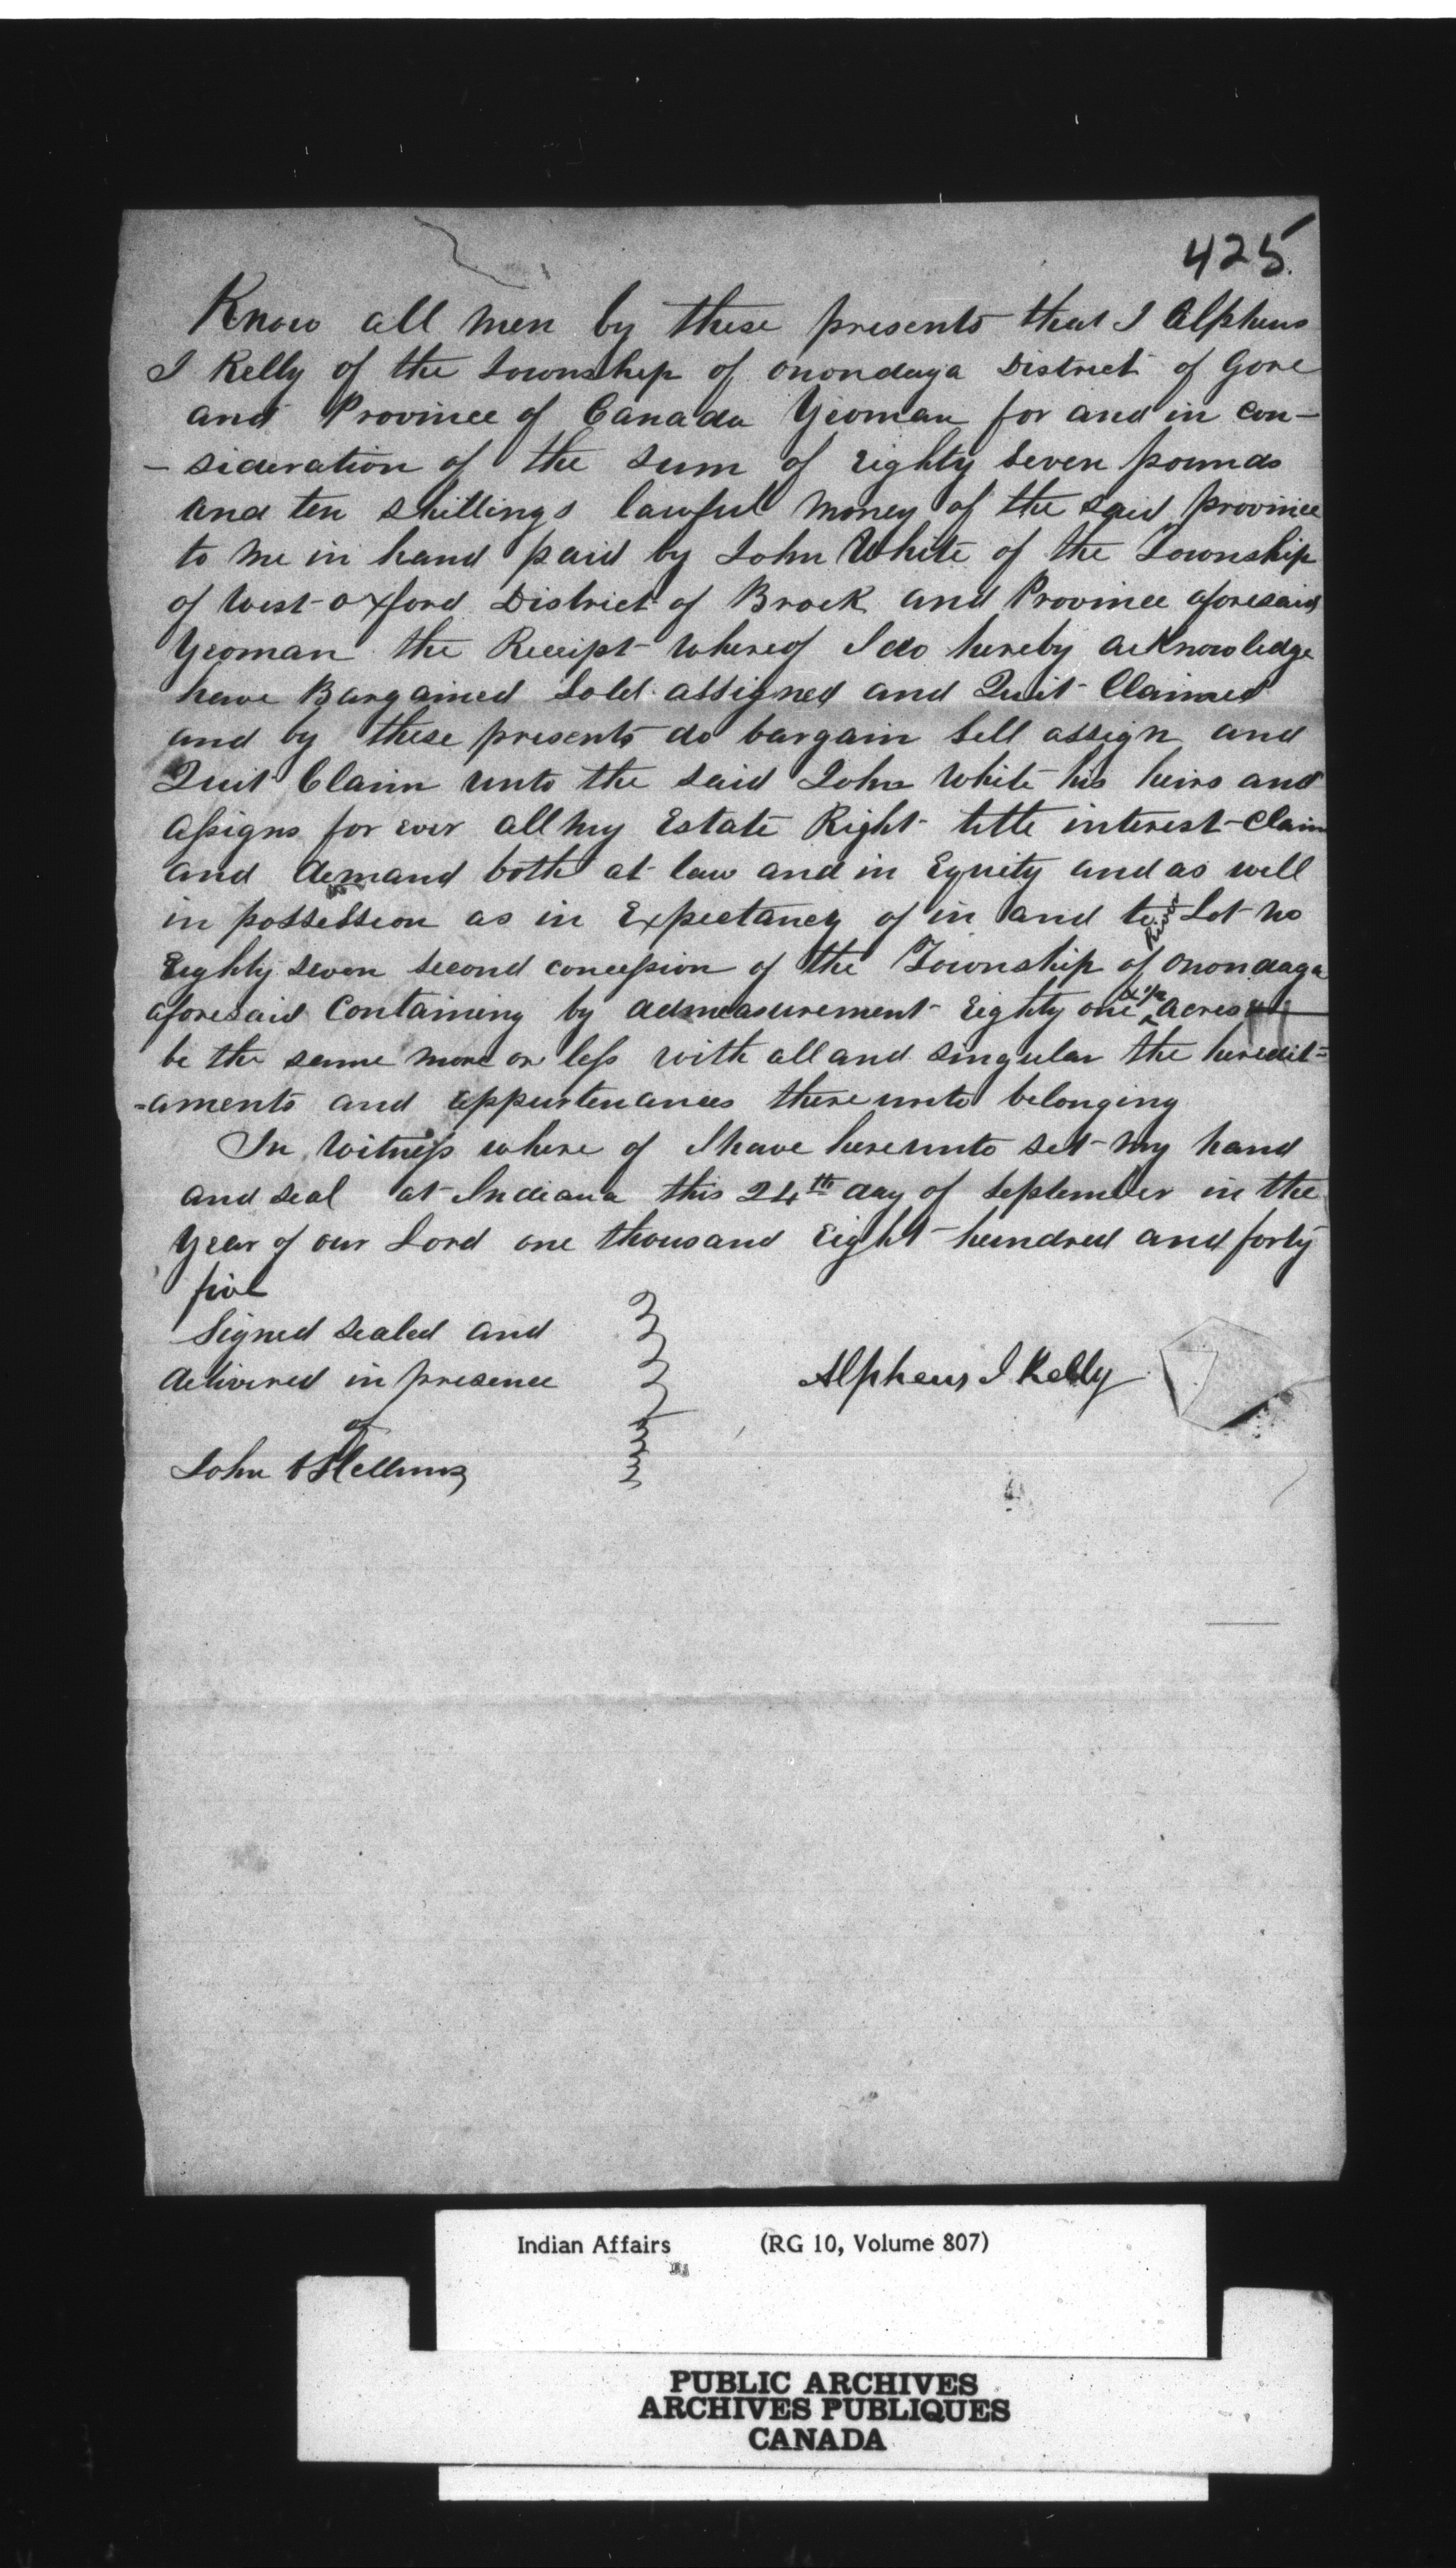 425.
Know all men by these presents that I Alpheus
I Kelly of the Township of Onondaga District of Gore
and Province of Canada Yeoman for and in con-
- sideration of the sum of Eighty Seven pounds
and ten shillings lawful money of the said province
to me in hand paid by John White of the Township
of West-Oxford District of Brock and Province aforesaid
Yeoman the Receipt whereof I do hereby acKnowledge
have Bargained Sold assigned and Quit Claimed
and by these presents do bargain Sell assign and
Quit Claim unto the said John White his heirs and
Assigns for ever all my Estate Right title interest-Claim
and demand both at law and in Equity and as well
in possession as in Expectancy of in and to Lot No
Eighty seven second concession of the Township of River Onondaga
aforesaid Containing by admeasurement Eighty one & 1/2 acres
be the same more or less with all and singular the heredit=
=aments and appurtenances thereunto belonging
In Witness where of I have hereunto set my hand
and seal at Indiana this 24th day of September in the
Year of our Lord one thousand Eight hundred and forty
five
Signed sealed and
delivered in presence
of
Alpheus I Kelly
John
Indian Affairs (RG 10, Volume 807)
PUBLIC ARCHIVES
ARCHIVES PUBLIQUES
CANADA